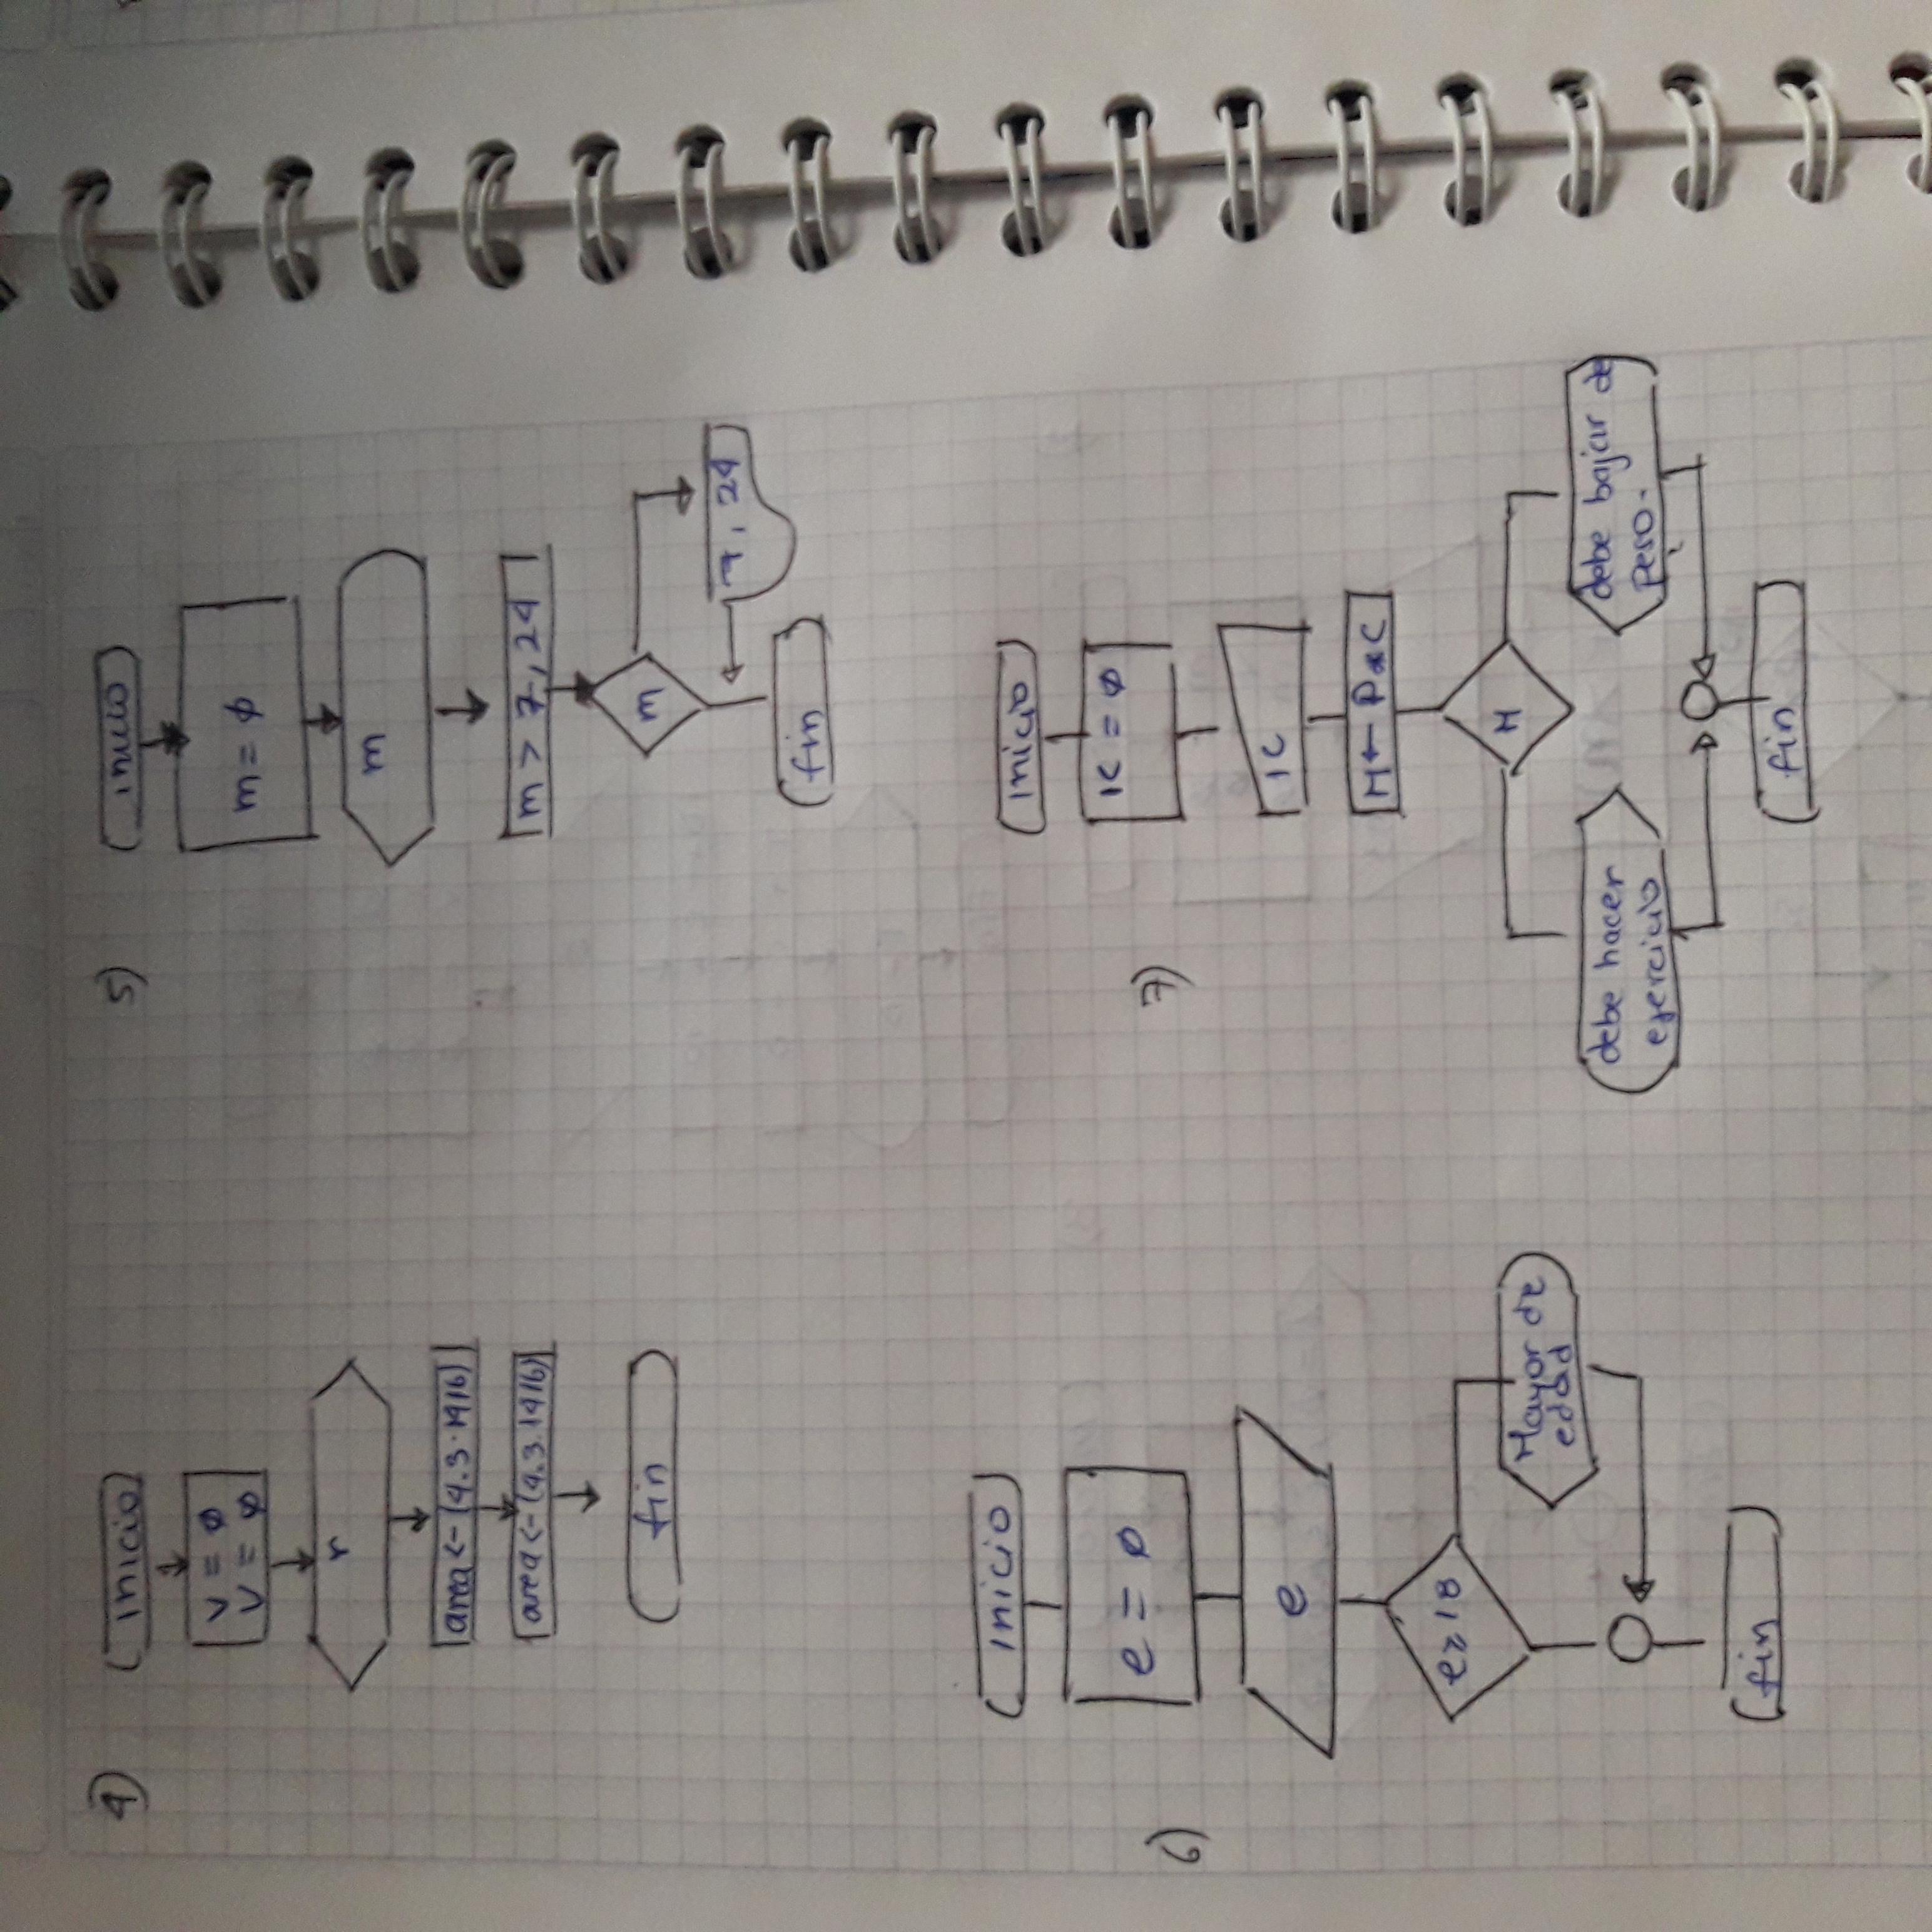 4)
inicio
v = ø
v = ø
r
area <- (4.3.1416)
area <- (4.3.1416)
fin
5)
inicio
m = ø
m
m > 7,24
m
7, 24
fin
6)
inicio
e = ø
e
e≥18
Mayor de
edad
fin
7)
inicio
IC = ø
IC
M ← P*C
M
debe hacer
ejercicio
debe bajar de
peso.
fin